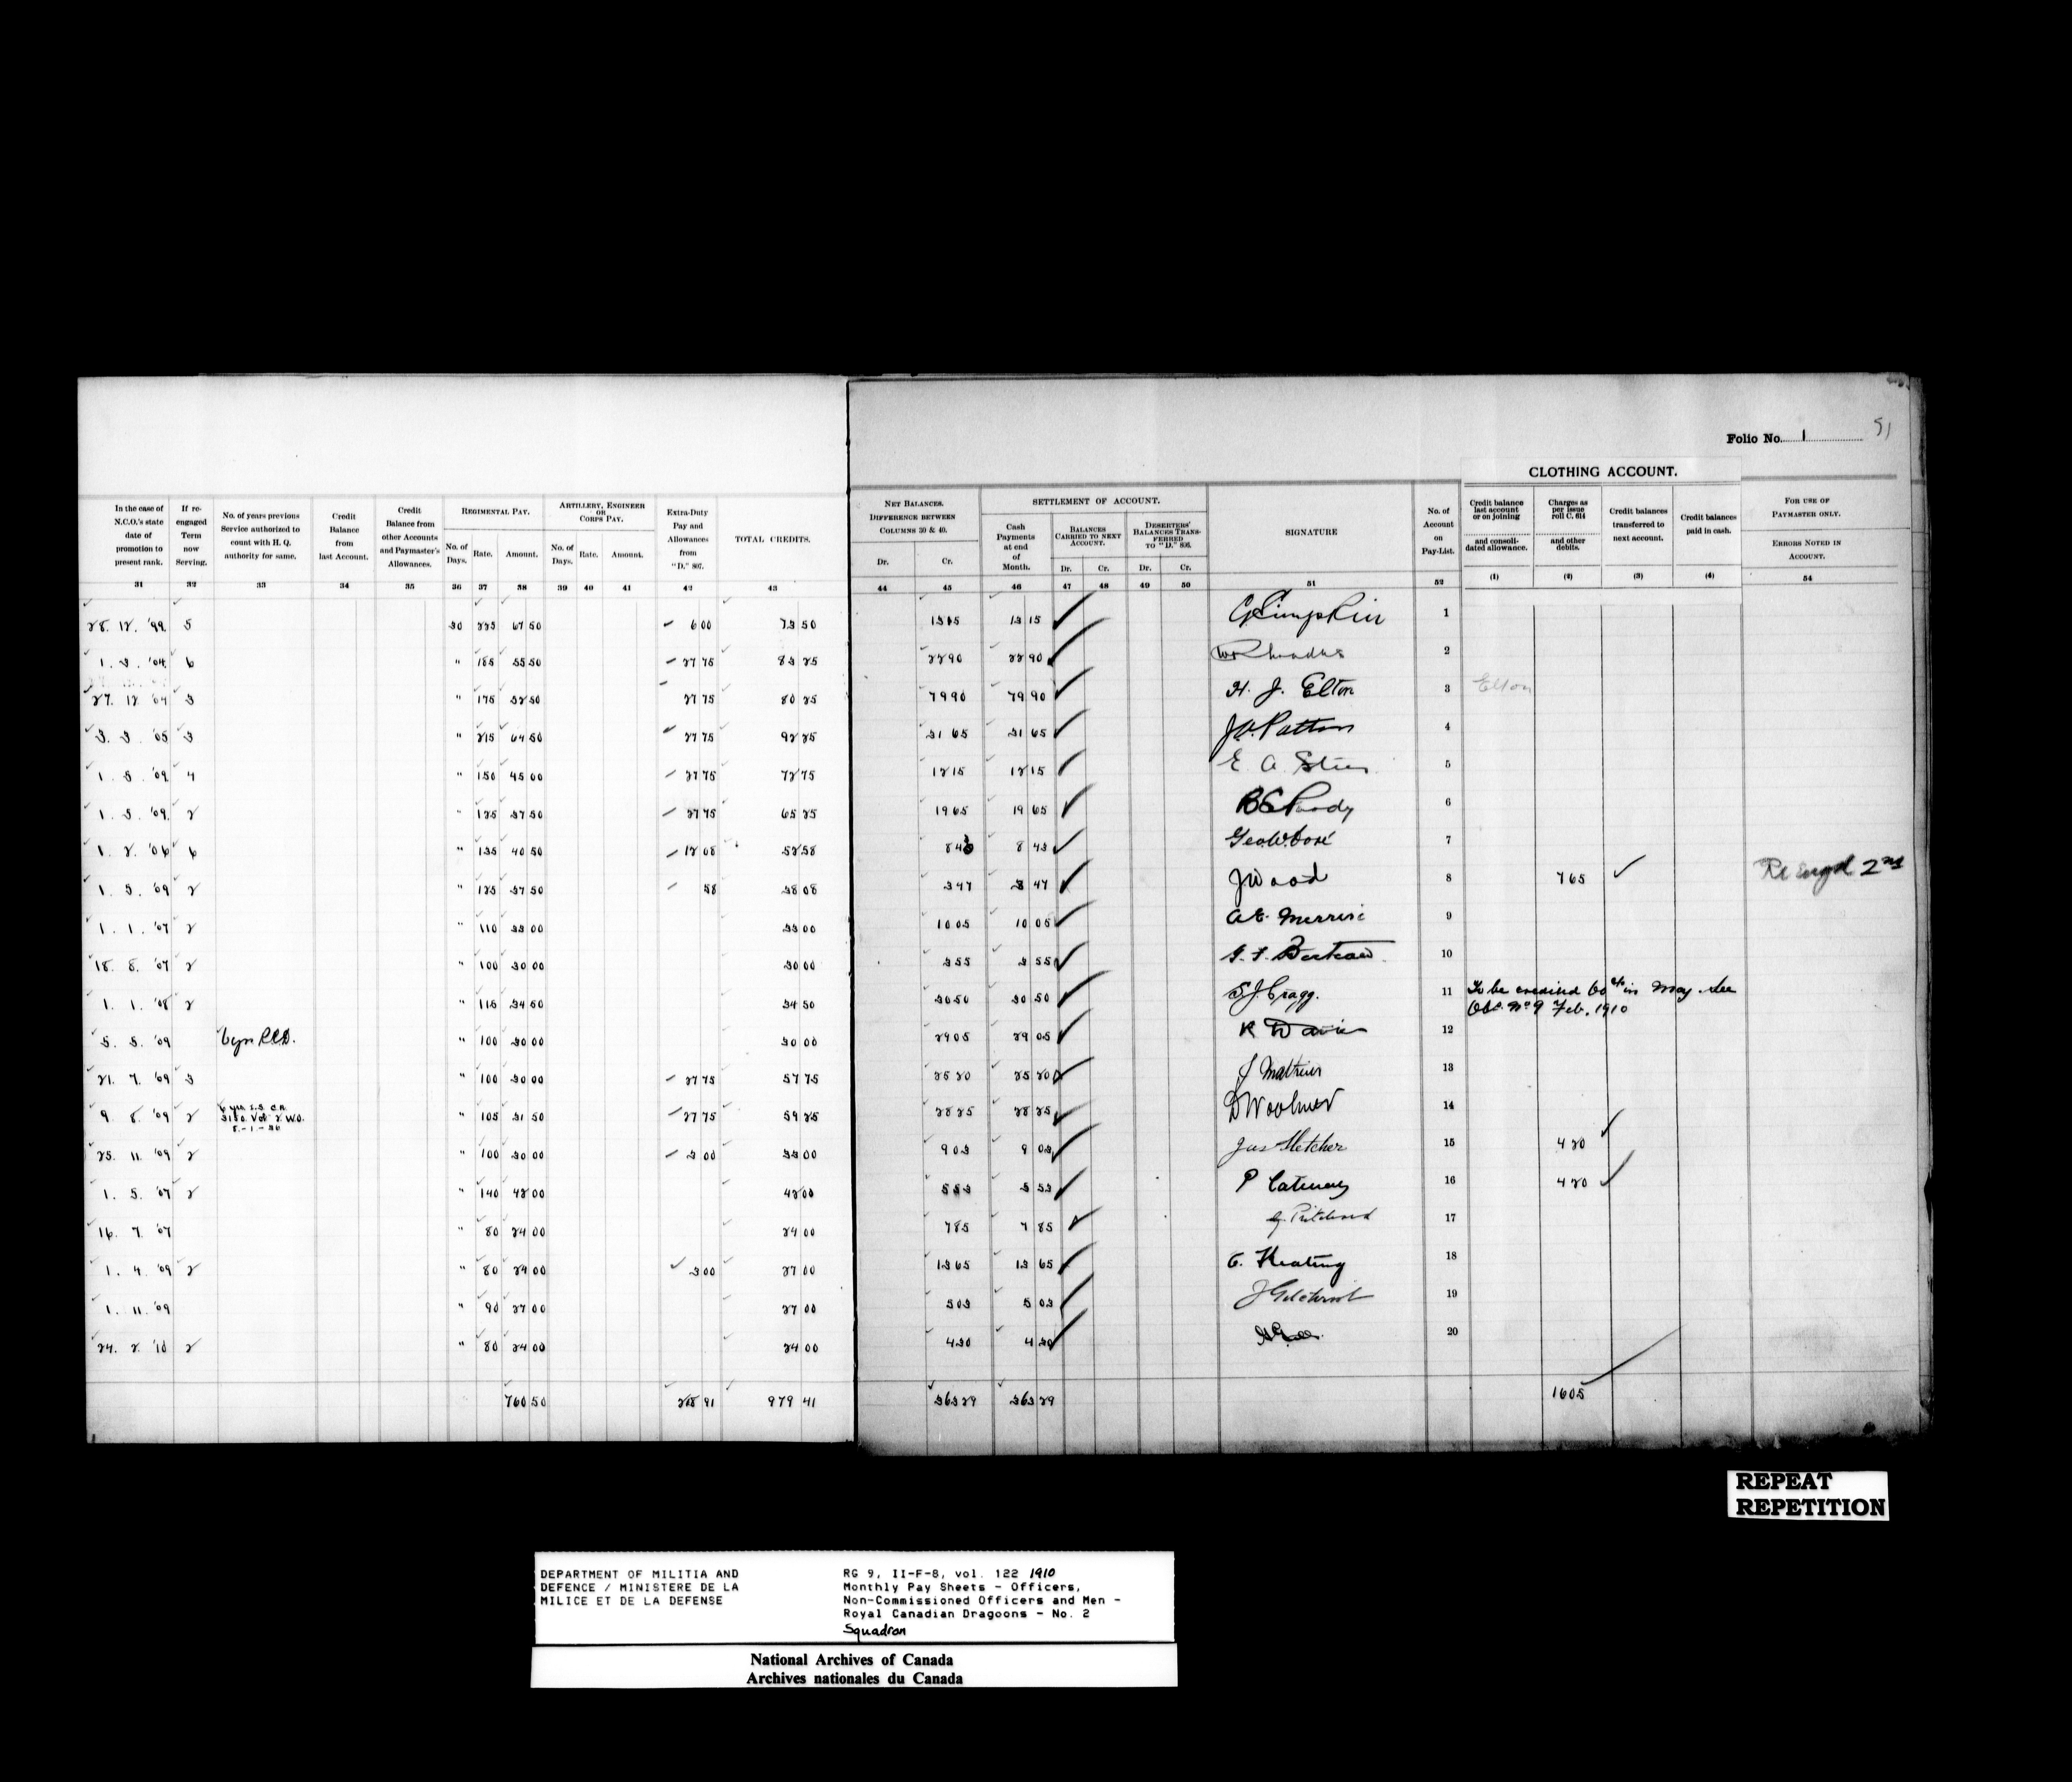 Folio No. 1
51
CLOTHING ACCOUNT.
In the case of N.C.O.'s state date of promotion to present rank.
If re-engaged Term now Serving.
No. of years previous Service authorized to count with H. Q. authority for same.
Credit Balance from last Account.
Credit Balance from other Accounts and Paymaster's Allowances.
REGIMENTAL PAY.
No. of Days. Rate. Amount.
ARTILLERY, ENGINEER OR CORPS PAY.
No. of Days. Rate. Amount.
Extra-Duty Pay and Allowances from "D." 807.
TOTAL CREDITS.
NET BALANCES.
DIFFERENCE BETWEEN COLUMNS 30 & 40.
Dr. Cr.
SETTLEMENT OF ACCOUNT.
Cash Payments at end of Month.
BALANCES CARRIED TO NEXT ACCOUNT.
Dr. Cr.
DESERTERS' BALANCES TRANSFERRED TO "D." 806.
Dr. Cr.
SIGNATURE
No. of Account on Pay-List.
Credit balance last account or on joining and consolidated allowance.
Charges as per issue roll C. 614 and other debits.
Credit balances transferred to next account.
Credit balances paid in cash.
FOR USE OF PAYMASTER ONLY.
ERRORS NOTED IN ACCOUNT.
31 32 33 34 35 36 37 38 39 40 41 42 43 44 45 46 47 48 49 50 51 52 (1) (2) (3) (4) 54
28. 12. '99. 5 30 225 67 50 6 00 73 50 13 15 13 15 G Simpkin 1
1. 3. '04. 6 " 185 55 50 27 75 83 25 22 90 22 90 2
27. 12 '04 3 " 175 52 50 27 75 80 25 79 90 79 90 H. J. Elton 3 Elton
3. 3. '05 3 " 215 64 50 27 75 92 25 31 65 31 65 J.A. Patton 4
1. 5. '09 4 " 150 45 00 27 75 72 75 12 15 12 15 E. A. 5
1. 5. '09. 2 " 125 37 50 27 75 65 25 19 65 19 65 6
1. 2. '06 6 " 135 40 50 12 08 52 58 8 43 8 43 Geo.W. Doré 7
1. 5. '09 2 " 125 37 50 58 38 08 3 47 3 47 J Wood 8 7 65 Re Engd 2nd
1. 1. '07 2 " 110 33 00 33 00 10 05 10 05 A.E. 9
18. 8. '07 2 " 100 30 00 30 00 3 55 3 55 G. F. 10
1. 1. '08 2 " 115 34 50 34 50 30 50 30 50 S.J. Cragg. 11 To be credited 60 cts in May. See
Obs. No 9 Feb. 1910
5. 5. '09 6 yrs R.C.D. " 100 30 00 30 00 29 05 29 05 R Davis 12
21. 7. '09 3 " 100 30 00 27 75 57 75 25 20 25 20 J Mathews 13
9. 8. '09 2 6 yrs. I.S. C.R. " 105 31 50 27 75 59 25 28 25 28 25 D Woolmer 14
3180. Vol. 2 W.O.
8.-1.-36
25. 11. '09 2 " 100 30 00 3 00 33 00 9 03 9 03 Jas Fletcher 15 4 20
1. 5. '07 2 " 140 42 00 42 00 5 53 5 53 P 16 4 20
16. 7. '07 " 80 24 00 24 00 7 85 7 85 G. Pritchard 17
1. 4. '09 2 " 80 24 00 3 00 27 00 13 65 13 65 C. Keating 18
1. 11. '09 " 90 27 00 27 00 5 03 5 03 J Gilchrist 19
24. 2. '10 2 " 80 24 00 24 00 4 30 4 30 20
760 50 218 91 979 41 363 29 363 29 16 05
REPEAT
REPETITION
DEPARTMENT OF MILITIA AND
DEFENCE / MINISTERE DE LA
MILICE ET DE LA DEFENSE
RG 9, II-F-8, vol. 122 1910
Monthly Pay Sheets - Officers,
Non-Commissioned Officers and Men -
Royal Canadian Dragoons - No. 2
Squadron
National Archives of Canada
Archives nationales du Canada